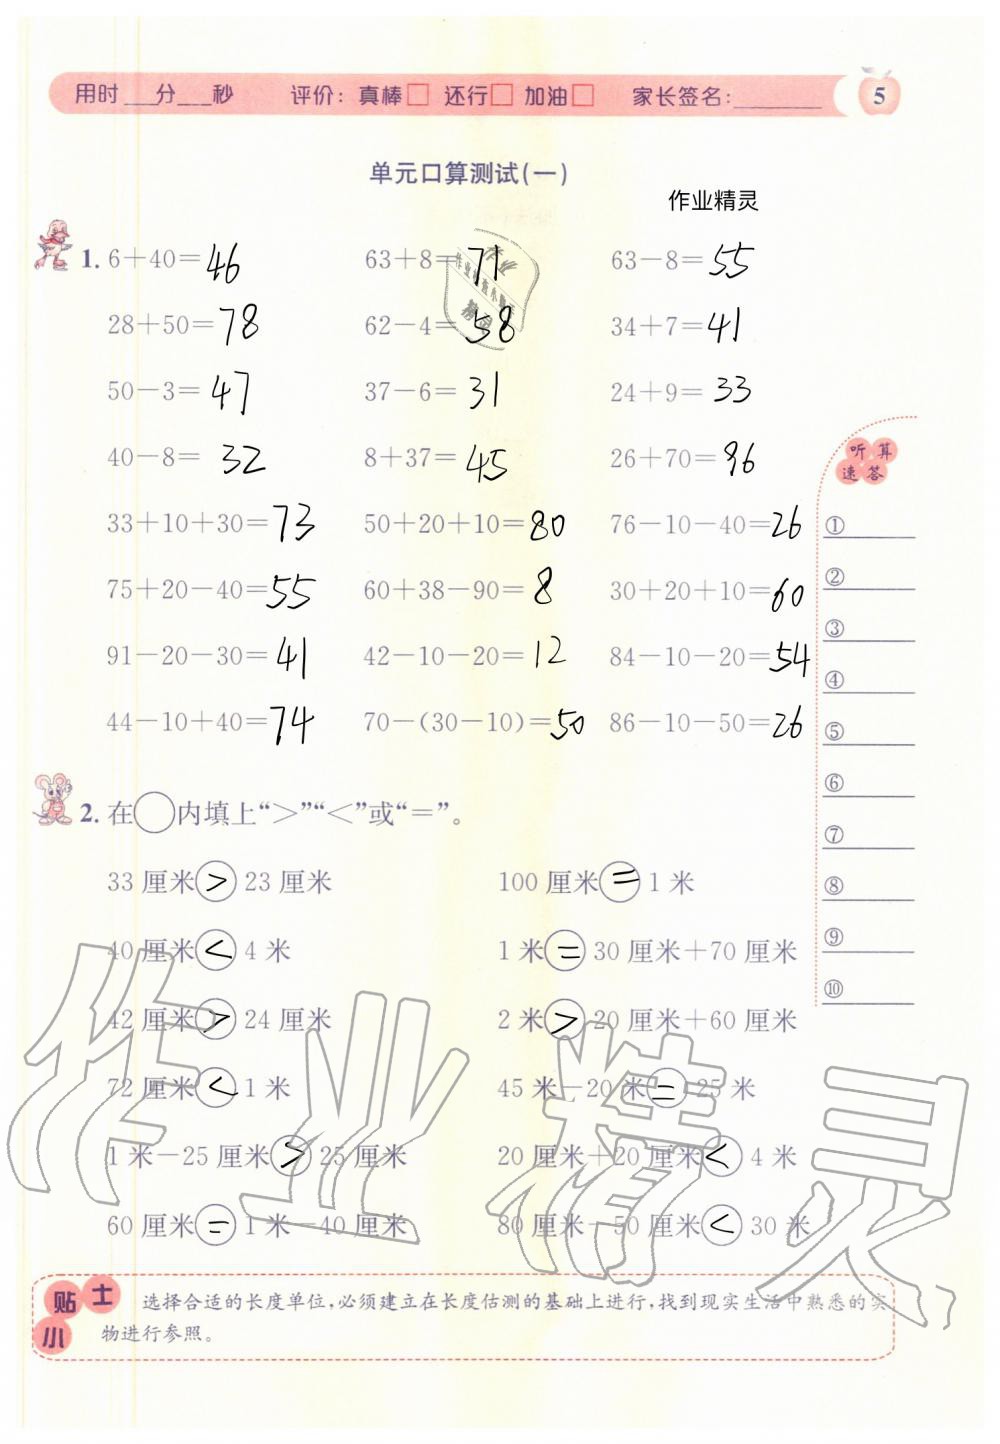 用时___分___秒 评价：真棒□ 还行□ 加油□ 家长签名：______ 5
单元口算测试(一)
作业精灵
1. 6+40=46 63+8=71 63-8=55
28+50=78 62-4=58 34+7=41
50-3=47 37-6=31 24+9=33
40-8=32 8+37=45 26+70=96
33+10+30=73 50+20+10=80 76-10-40=26
75+20-40=55 60+38-90=8 30+20+10=60
91-20-30=41 42-10-20=12 84-10-20=54
44-10+40=74 70-(30-10)=50 86-10-50=26
听算
速答
①
②
③
④
⑤
⑥
⑦
⑧
⑨
⑩
2. 在○内填上“>”“<”或“=”。
33 厘米 > 23 厘米 100 厘米 = 1 米
40 厘米 < 4 米 1 米 = 30 厘米+70 厘米
42 厘米 > 24 厘米 2 米 > 20 厘米+60 厘米
72 厘米 < 1 米 45 米-20 米 = 25 米
1 米-25 厘米 > 25 厘米 20 厘米+20 厘米 < 4 米
60 厘米 = 1 米-40 厘米 80 厘米-50 厘米 < 30 米
作业精灵
小贴士
选择合适的长度单位,必须建立在长度估测的基础上进行,找到现实生活中熟悉的实
物进行参照。